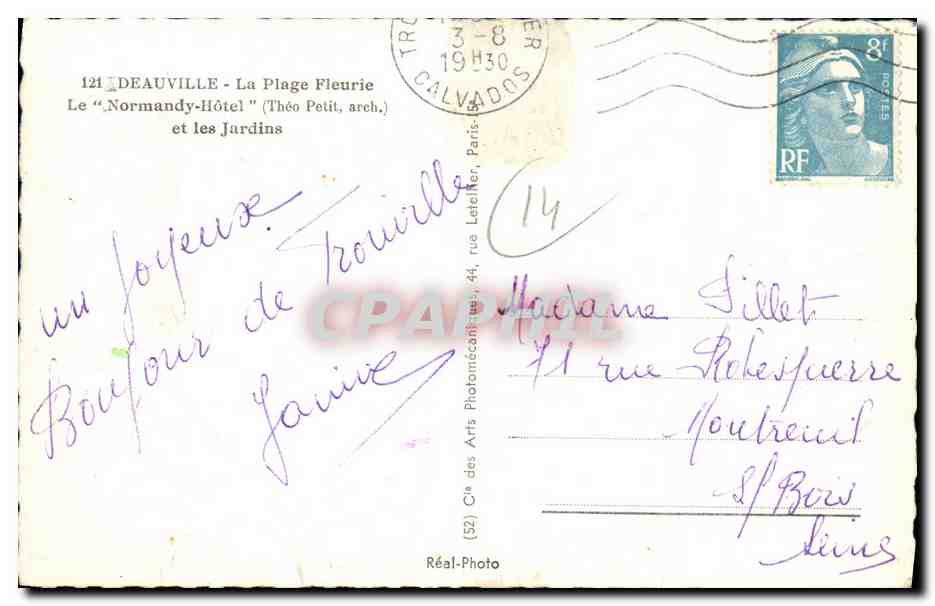 121 DEAUVILLE - La Plage Fleurie
Le "Normandy-Hôtel" (Théo Petit, arch.)
et les Jardins
3-8
19H30
CALVADOS
8f
POSTES
RF
14
un Joyeux
Bonjour de Trouville
Janine
(52) Cie des Arts Photomécaniques, 44, rue Letellier, Paris-15
Madame Fillet
71 rue Robespierre
Montreuil
s/ Bois
Seine
Réal-Photo
CPAPHIL